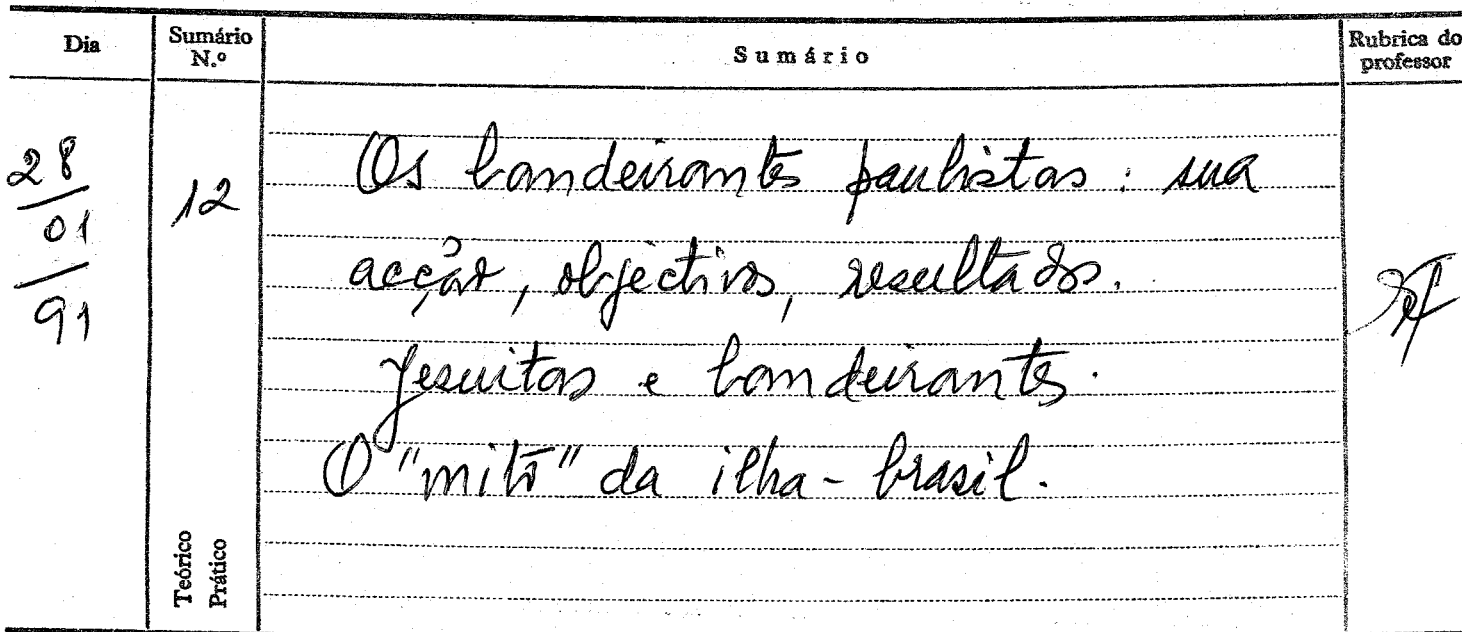 Dia
Sumário N.º
Sumário
Rubrica do professor
28
01
91
12
Os bandeirantes paulistas: sua
acção, objectivos, resultados.
Jesuitas e bandeirantes.
O "mito" da ilha-brasil.
Teórico
Prático